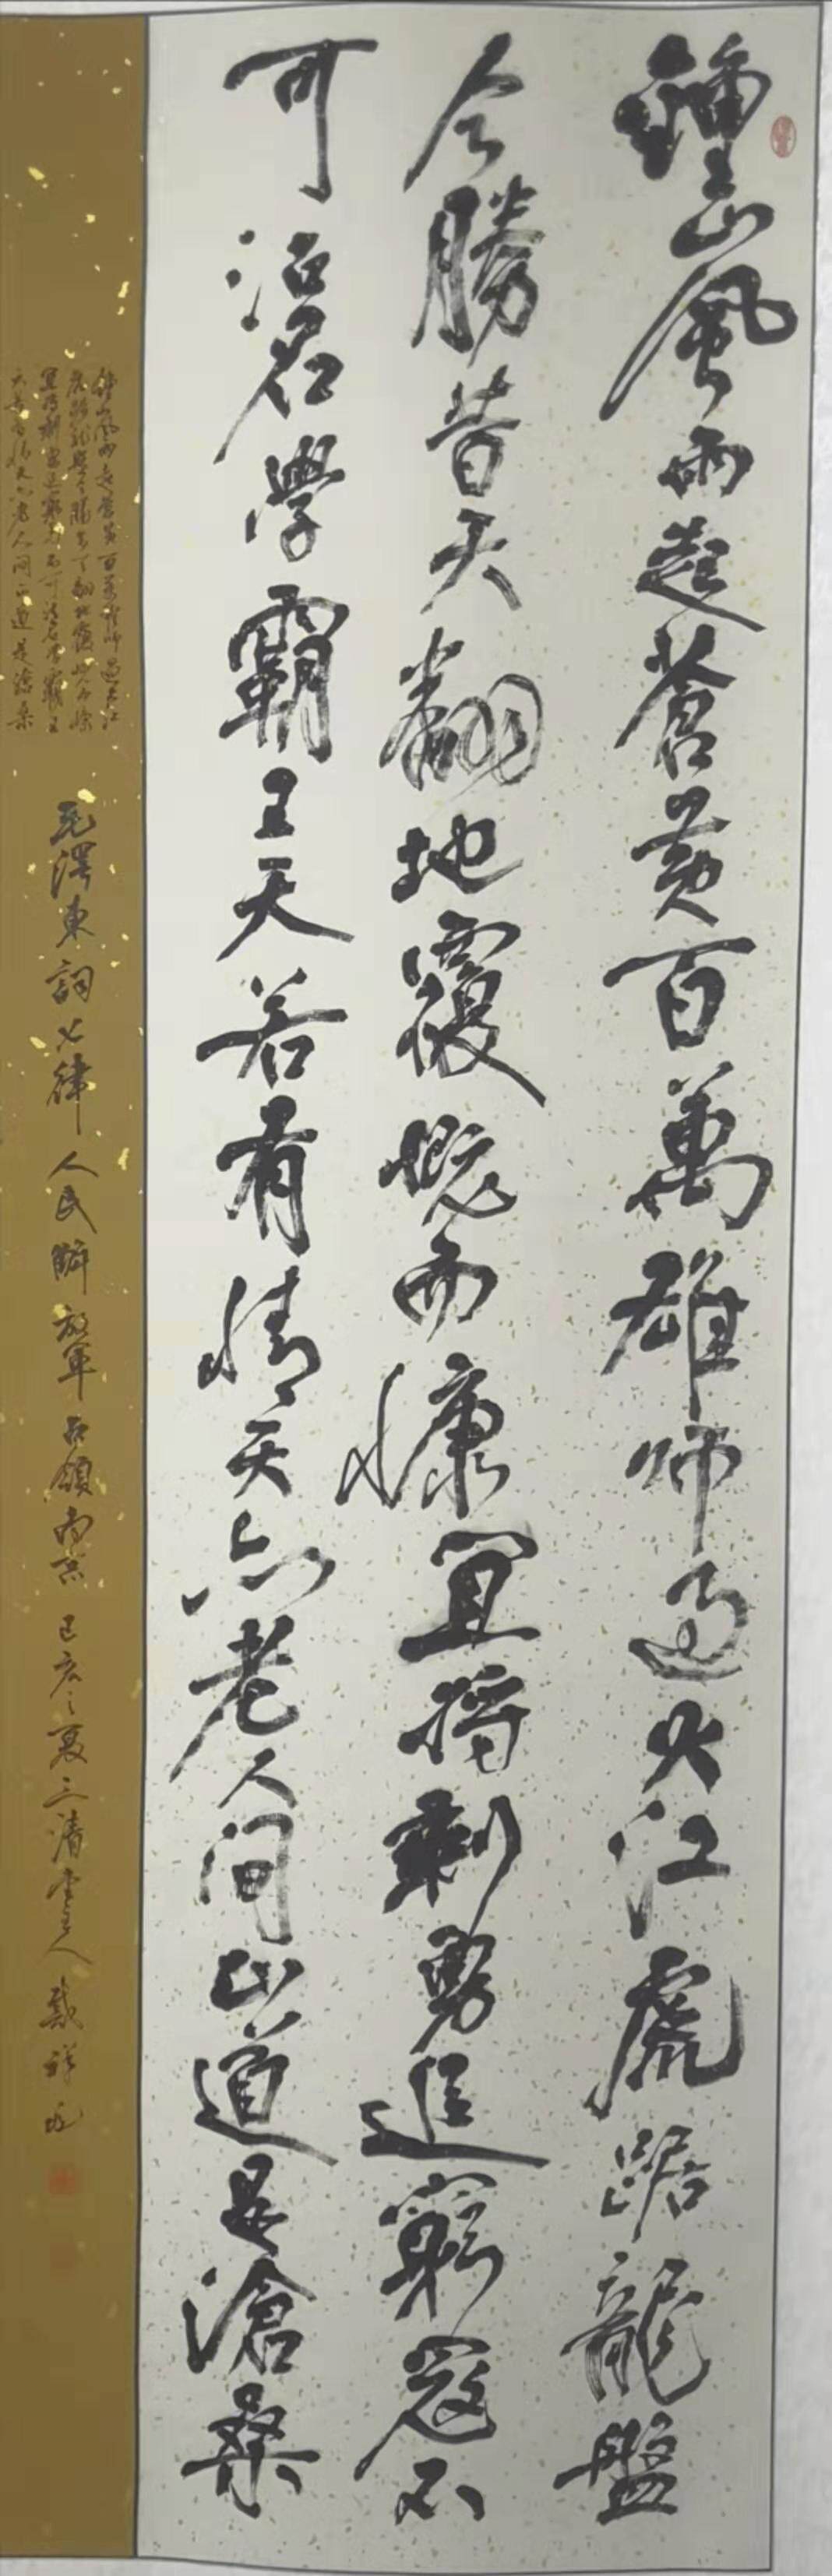 鍾山風雨起蒼黃百萬雄師過大江虎踞龍盤
今勝昔天翻地覆慨而慷宜將剩勇追窮寇不
可沽名學霸王天若有情天亦老人間正道是滄桑
鍾山風雨起蒼黃百萬雄師過大江
虎踞龍盤今勝昔天翻地覆慨而慷
宜將剩勇追窮寇不可沽名學霸王
天若有情天亦老人間正道是滄桑
毛澤東詞七律 人民解放軍占領南京 己亥之夏三清堂主人 戴祥